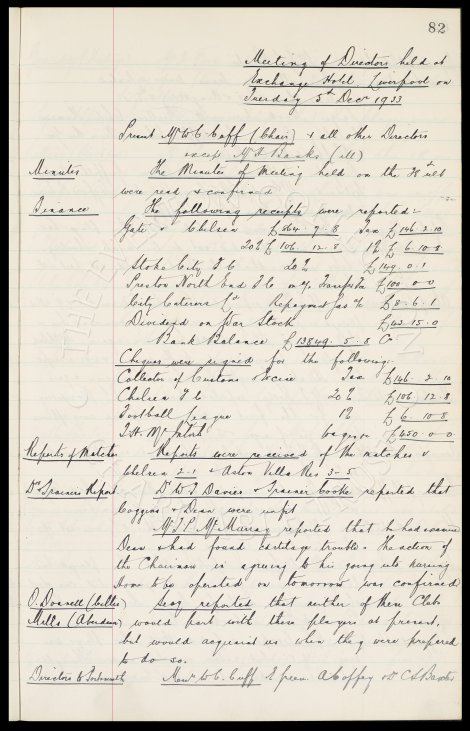 82
Meeting of Directors held at
Exchange Hotel Liverpool on
Tuesday 5th Decr 1933
Present Mr W.C. Cuff (Chair) & all other Directors
except Mr A Banks (ill)
Minutes The Minutes of Meeting held on the 28th ult
were read & confirmed
Finance The following receipts were reported:-
Gate v Chelsea £864. 7. 8 Tax £146. 2. 10
20% £106. 12. 8 1% £6. 10. 8
Stoke City F C 20% £149. 0. 1
Preston North End F.C. Transfer £100. 0. 0
City Caterers Ld Repayment Gas £8. 6. 1
Dividend on War Stock £43. 15. 0
Bank Balance £13849. 5. 8 Cr
Cheques were signed for the following:-
Collector of Customs & Excise Tax £146. 2. 10
Chelsea F C 20% £106. 12. 8
Football League 1% £6. 10. 8
T.H. McIntosh wages £450. 0. 0
Reports of Matches Reports were received of the matches v
Chelsea 2-1 & Aston Villa Res 3-5
Dr & Trainers Report Dr W.J. Davies & Trainer Cooke reported that
Coggins & Dean were unfit
Mr J.P. McMurray reported that he had examined
Dean & had found cartilage trouble. The action of
the Chairman in agreeing to his going into Nursing
Home to be operated on tomorrow was confirmed
O. Donnell (Celtic) Secy reported that neither of these Clubs
Mills (Aberdeen) would part with these players at present,
but would acquaint us when they were prepared
to do so.
Directors to Portsmouth Messrs W.C. Cuff E Green A Coffey & Dr C S Baxter